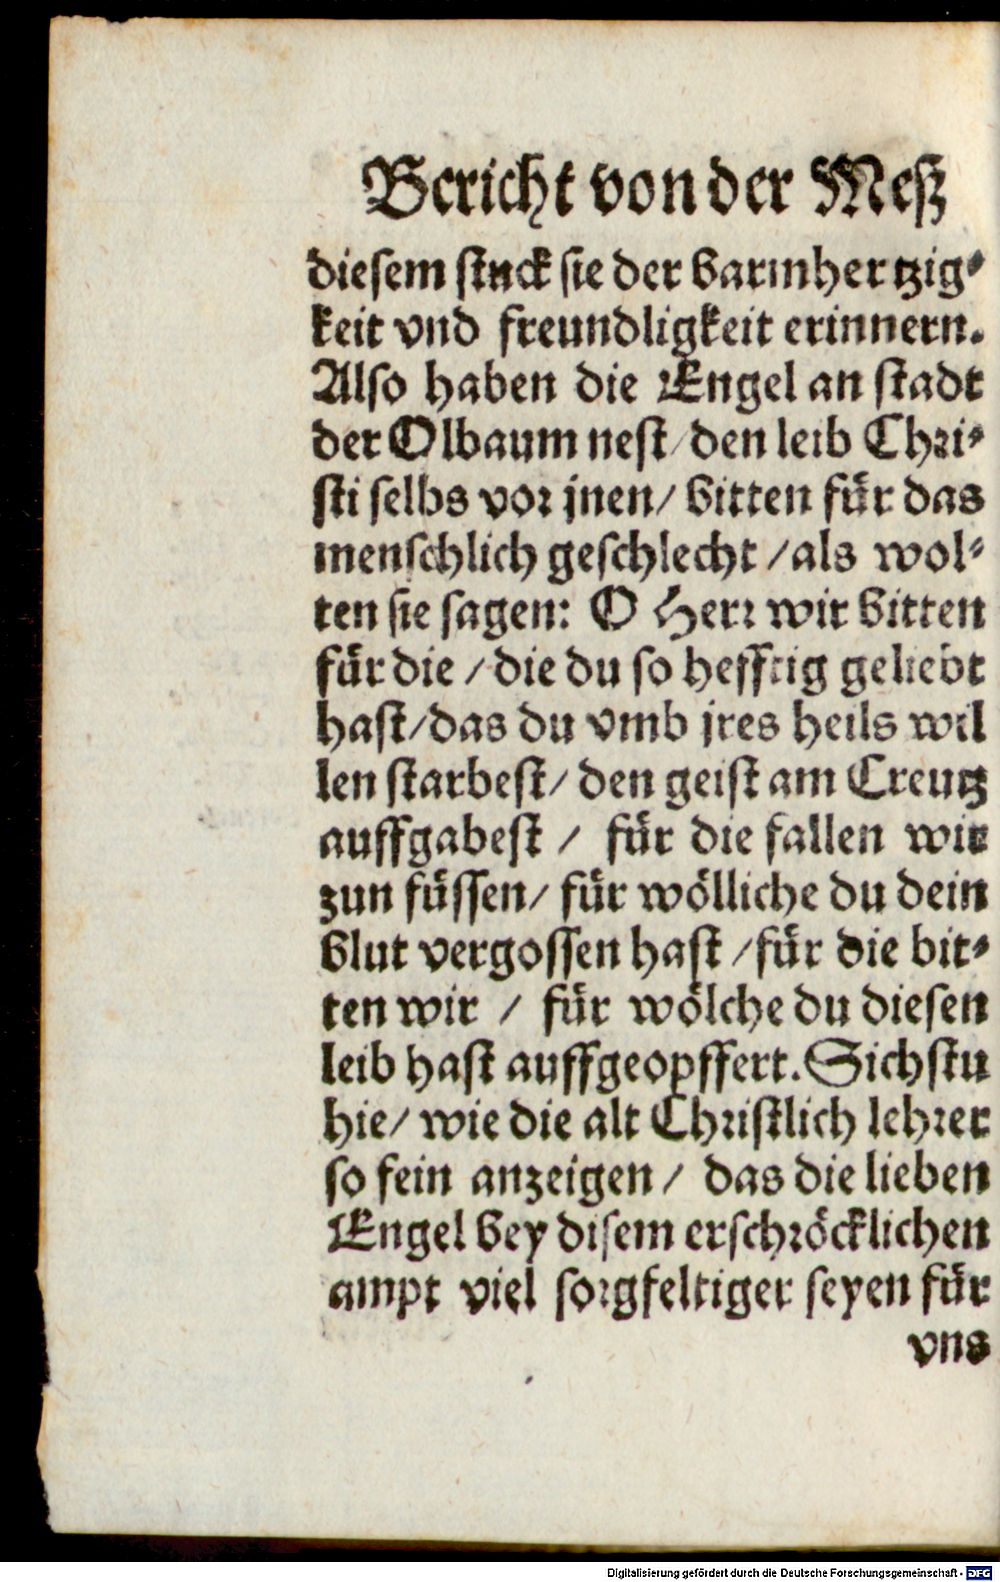 Bericht von der Meß
diesem stuck sie der barmhertzig⸗
keit vnd freundligkeit erinnern.
Also haben die Engel an stadt
der Olbaum nest/ den leib Chri⸗
sti selbs vor jnen/ bitten für das
menschlich geschlecht / als wol⸗
ten sie sagen: O Herr wir bitten
für die / die du so hefftig geliebt
hast/ das du vmb jres heils wil
len starbest/ den geist am Creutz
auffgabest / für die fallen wir
zun füssen/ für wölliche du dein
blut vergossen hast / für die bit⸗
ten wir / für wölche du diesen
leib hast auffgeopffert. Sichstu
hie/ wie die alt Christlich lehrer
so fein anzeigen / das die lieben
Engel bey disem erschröcklichen
ampt viel sorgfeltiger seyen für
vns
Digitalisierung gefördert durch die Deutsche Forschungsgemeinschaft - DFG